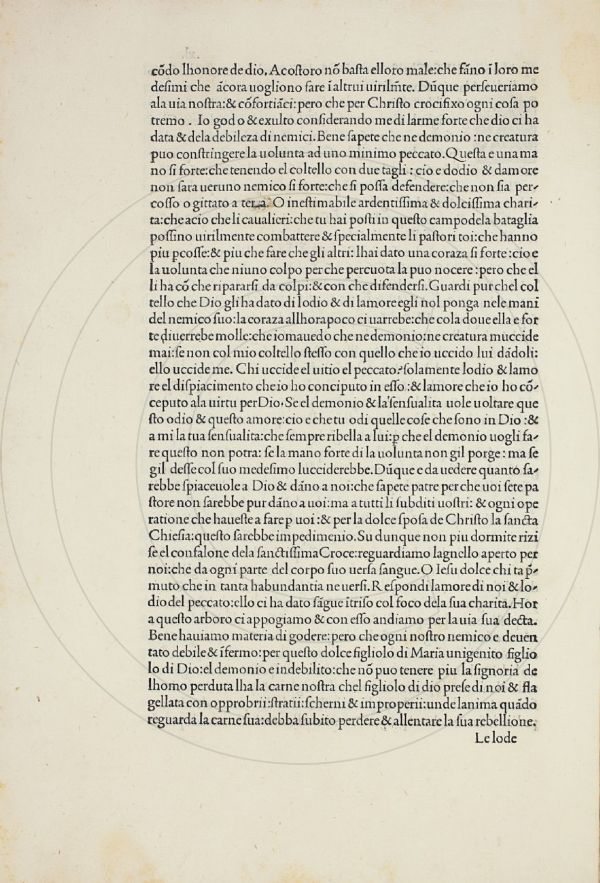 cõdo lhonore de dio. A costoro nõ basta elloro male:che fãno ĩ loro me
desimi che ãcora uogliono fare ĩ altrui uirilmẽte. Dũque perseueriamo
ala uia nostra:& cõfortiãci:pero che per Christo crocifixo ogni cosa po
tremo . Io godo & exulto considerando me di larme forte che dio ci ha
data & dela debileza di nemici. Bene sapete che ne demonio :ne creatura
puo constringere la uolunta ad uno minimo peccato. Questa e una ma
no si forte:che tenendo el coltello con due tagli : cio e dodio & damore
non sara ueruno nemico si forte:che si possa defendere:che non sia per-
cosso o gittato a terra. O inestimabile ardentissima & dolcissima chari-
ta:che acio che li caualieri:che tu hai posti in questo campo dela bataglia
possino uirilmente combattere & specialmente li pastori toi:che hanno
piu pcosse:& piu che fare che gli altri: lhai dato una coraza si forte :cio e
la uolunta che niuno colpo per che percuota la puo nocere :pero che el
li ha cõ che ripararsi da colpi:& con che difendersi. Guardi pur chel col
tello che Dio gli ha dato di lodio & di lamore egli nol ponga nele mani
del nemico suo:la coraza allhora poco ci uarebbe:che cola doue ella e for
te diuerrebe molle:che io mauedo che ne demonio:ne creatura muccide
mai:se non col mio coltello stesso con quello che io uccido lui dãdoli:
ello uccide me. Chi uccide el uitio el peccato:solamente lodio & lamo
re el dispiacimento che io ho conciputo in esso :& lamore che io ho cõ-
ceputo ala uirtu per Dio. Se el demonio & la sensualita uole uoltare que
sto odio & questo amore:cio e che tu odi quelle cose che sono in Dio :&
a mi la tua sensualita:che sempre ribella a lui:p che el demonio uogli fa-
re questo non potra: se la mano forte di la uolunta non gil porge: ma se
gil desse col suo medesimo lucciderebbe. Dũque e da uedere quanto sa-
rebbe spiaceuole a Dio & dãno a noi:che sapete patre per che uoi sete pa
store non sarebbe pur dãno a uoi:ma a tutti li subditi uostri: & ogni ope
ratione che haueste a fare p uoi :& per la dolce sposa de Christo la sancta
Chiesia:questo sarebbe impedimenio. Su dunque non piu dormite rizi
se el confalone dela sanctissima Croce:reguardiamo lagnello aperto per
noi:che da ogni parte del corpo suo uersa sangue. O Iesu dolce chi ta p̃-
muto che in tanta habundantia ne uersi. Respondi lamore di noi & lo-
dio del peccato:ello ci ha dato sãgue ĩtriso col foco dela sua charita. Hor
a questo arboro ci appogiamo & con esso andiamo per la uia sua decta.
Bene hauiamo materia di godere:pero che ogni nostro nemico e deuen
tato debile & ĩfermo:per questo dolce figliolo di Maria unigenito figlio
lo di Dio:el demonio e indebilito:che nõ puo tenere piu la signoria de
lhomo perduta lha la carne nostra chel figliolo di dio prese di noi & fla
gellata con opprobrii:stratii:scherni & improperii:unde lanima quãdo
reguarda la carne sua:debba subito perdere & allentare la sua rebellione.
Le lode